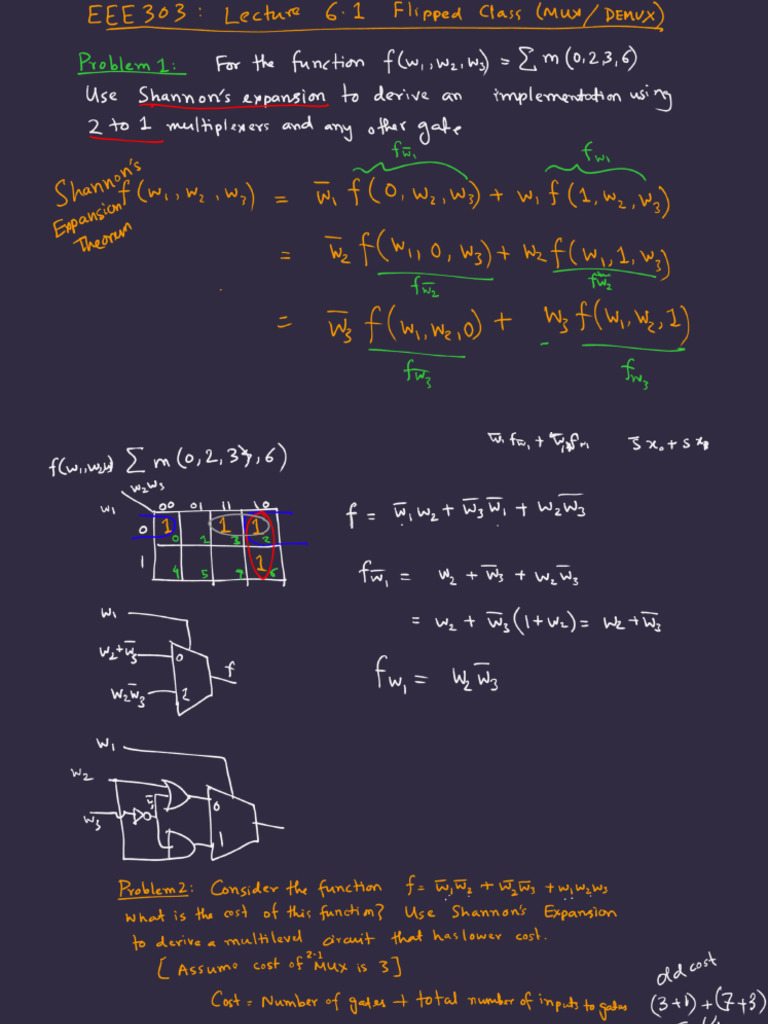 EEE303: Lecture 6.1 Flipped Class (MUX/DEMUX)
Problem 1: For the function f(w₁,w₂,w₃) = ∑ m(0,2,3,6)
Use Shannon's expansion to derive an implementation using
2 to 1 multiplexers and any other gate
f_w̅₁ f_w₁
Shannon's Expansion Theorem
f(w₁, w₂, w₃) = w̅₁ f(0, w₂, w₃) + w₁ f(1, w₂, w₃)
= w̅₂ f(w₁, 0, w₃) + w₂ f(w₁, 1, w₃)
f_w̅₂ f_w₂
= w̅₃ f(w₁, w₂, 0) + w₃ f(w₁, w₂, 1)
f_w̅₃ f_w₃
s̅x₀ + sx₁
f(w₁,w₂,w₃) ∑ m(0,2,3,6)
w₂w₃
w₁ 00 01 11 10
0 1 0 1 1 3 1 2
1 4 5 7 1 6
f = w̅₁w₂ + w̅₃w̅₁ + w₂w̅₃
f_w̅₁ = w₂ + w̅₃ + w₂w̅₃
= w₂ + w̅₃(1+w₂) = w₂ + w̅₃
f_w₁ = w₂w̅₃
w₁
w₂+w̅₃ 0
f
w₂w̅₃ 2
w₁
w₂
w̅₃ 0
w₃
1
Problem 2: Consider the function f = w̅₁w̅₂ + w̅₂w̅₃ + w₁w₂w₃
What is the cost of this function? Use Shannon's Expansion
to derive a multilevel circuit that has lower cost.
[Assume cost of 2-1 MUX is 3]
Cost = Number of gates + total number of inputs to gates
old cost
(3+1) + (7+3)